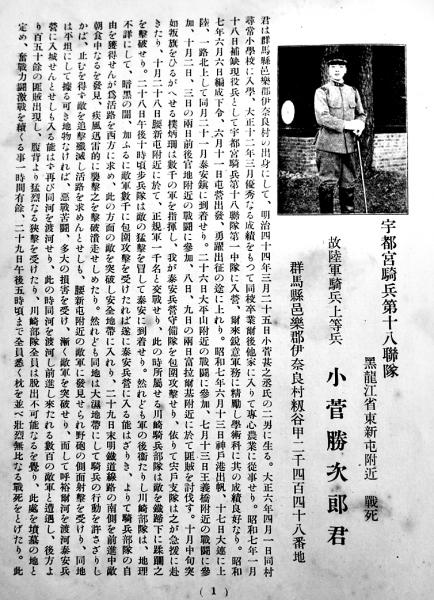 宇都宮騎兵第十八聯隊
黑龍江省東新屯附近 戰死
故陸軍騎兵上等兵 小菅勝次郎君
群馬縣邑樂郡伊奈良村籾谷甲二千四百四十八番地
君は群馬縣邑樂郡伊奈良村の出身にして、明治四十四年三月二十五日小菅甚之丞氏の二男に生る。大正六年四月一日同村
尋常小學校に入學、大正十二年三月優秀なる成績をもつて同校卒業爾後他家に入りて專心農業に從事せり。昭和七年一月
十八日補缺現役兵として宇都宮騎兵第十八聯隊第一中隊に入營、爾來銳意軍務に精勵し學術科に共の成績良好なり。昭和
七年六月六日編成下令、六月十一日屯營出發、勇躍出征の途に上れり。昭和七年六月十三日神戸港出帆、十七日大連に上
陸、一路北上して同月二十一月泰安鎮に到着せり。二十六日大平山附近の戰鬪に參加、七月十三日王義橋附近の戰鬪に參
加、十月二日、三日の兩日前後官地附近の戰鬪に參加、八日、九日の兩日富拉爾基附近に於て匪賊を討伐す。十月中旬突
如叛旗をひるがへせる樸炳珊は數千の軍を指揮し、我が泰安兵營守備隊を包圍攻擊せり、依りて宍戸支隊は之が急援に赴
きたり、十月二十八日腰新屯附近に於て、正規軍一千名と交戰せり、此の時所屬せる川崎騎兵部隊は敵を鐵蹄下に蹂躙之
を擊破せり。二十八日午後十時頃步兵隊は敵の猛擊を冒して泰安に到着せり。然れども軍の後衞たりし川崎部隊は、地理
不詳にして、暗黑の闇、加ふるに敵軍數千に包圍攻擊を受けたれば遂に泰安兵營に入る能はざりき、よりて騎兵部隊の自
由を獲得せんが爲活路を西方に求め、此の方面の敵を突破し安全地帶に入れり、二十九日未明鐵道線路の南側を前進中敵
朝食中なるを發見、疾風迅雷的に襲擊之を擊破潰走せしめたり。然れども同地は大濕地帶にして騎兵の行動を許さざりし
かば、止むを得ず敵を追擊殲滅し活路を求めんとせしも、腰新屯附近の敵軍に發見せられ野砲の側面射擊を受けり、同地
は平坦にして據る可き地物なければ、惡戰苦鬪、多大の損害を受け、漸く敵軍を突破せり、而して呼裕爾河を渡河泰安兵
營に入城んとせしも入る能はず再び同河を渡河せり。此の時同河を渡河し前進し來たれる數百の敵軍と遭遇し、後方よ
り百五十餘の匪賊出現し、腹背より猛烈なる狹擊を受けたり、川崎部隊全員は脱出不可能なるを覺り、此處を墳墓の地と
定め、奮戰力鬪激戰を續くる事一時間有餘、二十九日午後五時頃まで全員悉く枕を並べ壯烈無比なる戰死をとげたり。此
( 1 )